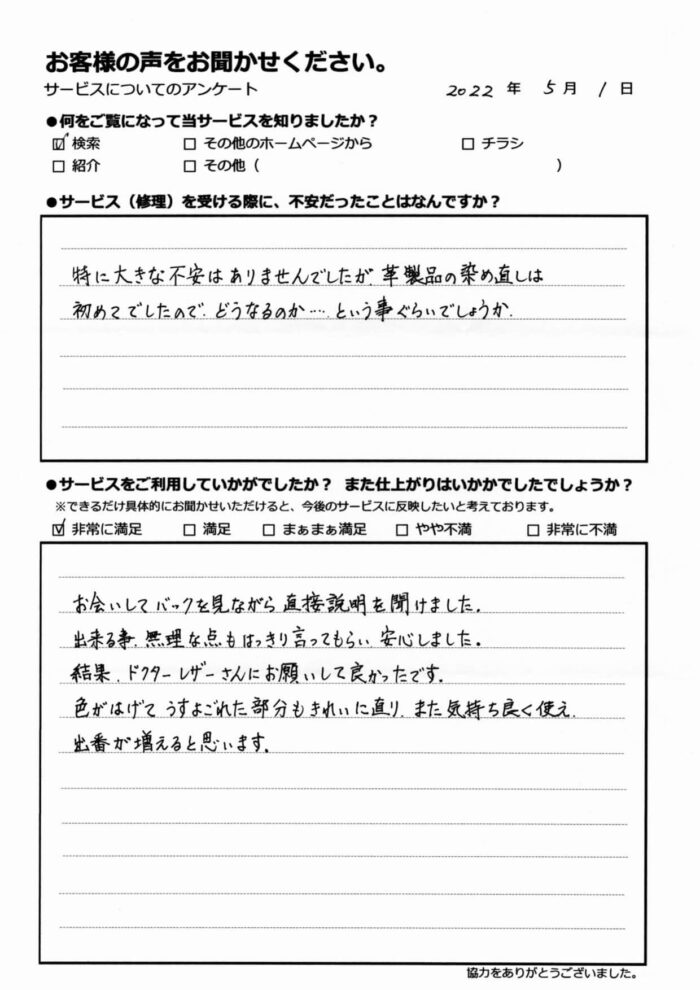 お客様の声をお聞かせください。
サービスについてのアンケート 2022 年 5 月 1 日
●何をご覧になって当サービスを知りましたか？
☑ 検索 □ その他のホームページから □ チラシ
□ 紹介 □ その他（ ）
●サービス（修理）を受ける際に、不安だったことはなんですか？
特に大きな不安はありませんでしたが、革製品の染め直しは
初めてでしたので、どうなるのか…、という事ぐらいでしょうか.
●サービスをご利用していかがでしたか？ また仕上がりはいかかでしたでしょうか？
※できるだけ具体的にお聞かせいただけると、今後のサービスに反映したいと考えております。
☑ 非常に満足 □ 満足 □ まぁまぁ満足 □ やや不満 □ 非常に不満
お会いしてバックを見ながら直接説明を聞けました。
出来る事、無理な点もはっきり言ってもらい、安心しました。
結果、ドクターレザーさんにお願いして良かったです。
色がはげてうすよごれた部分もきれいに直り、また気持ち良く使え、
出番が増えると思います。
協力をありがとうございました。